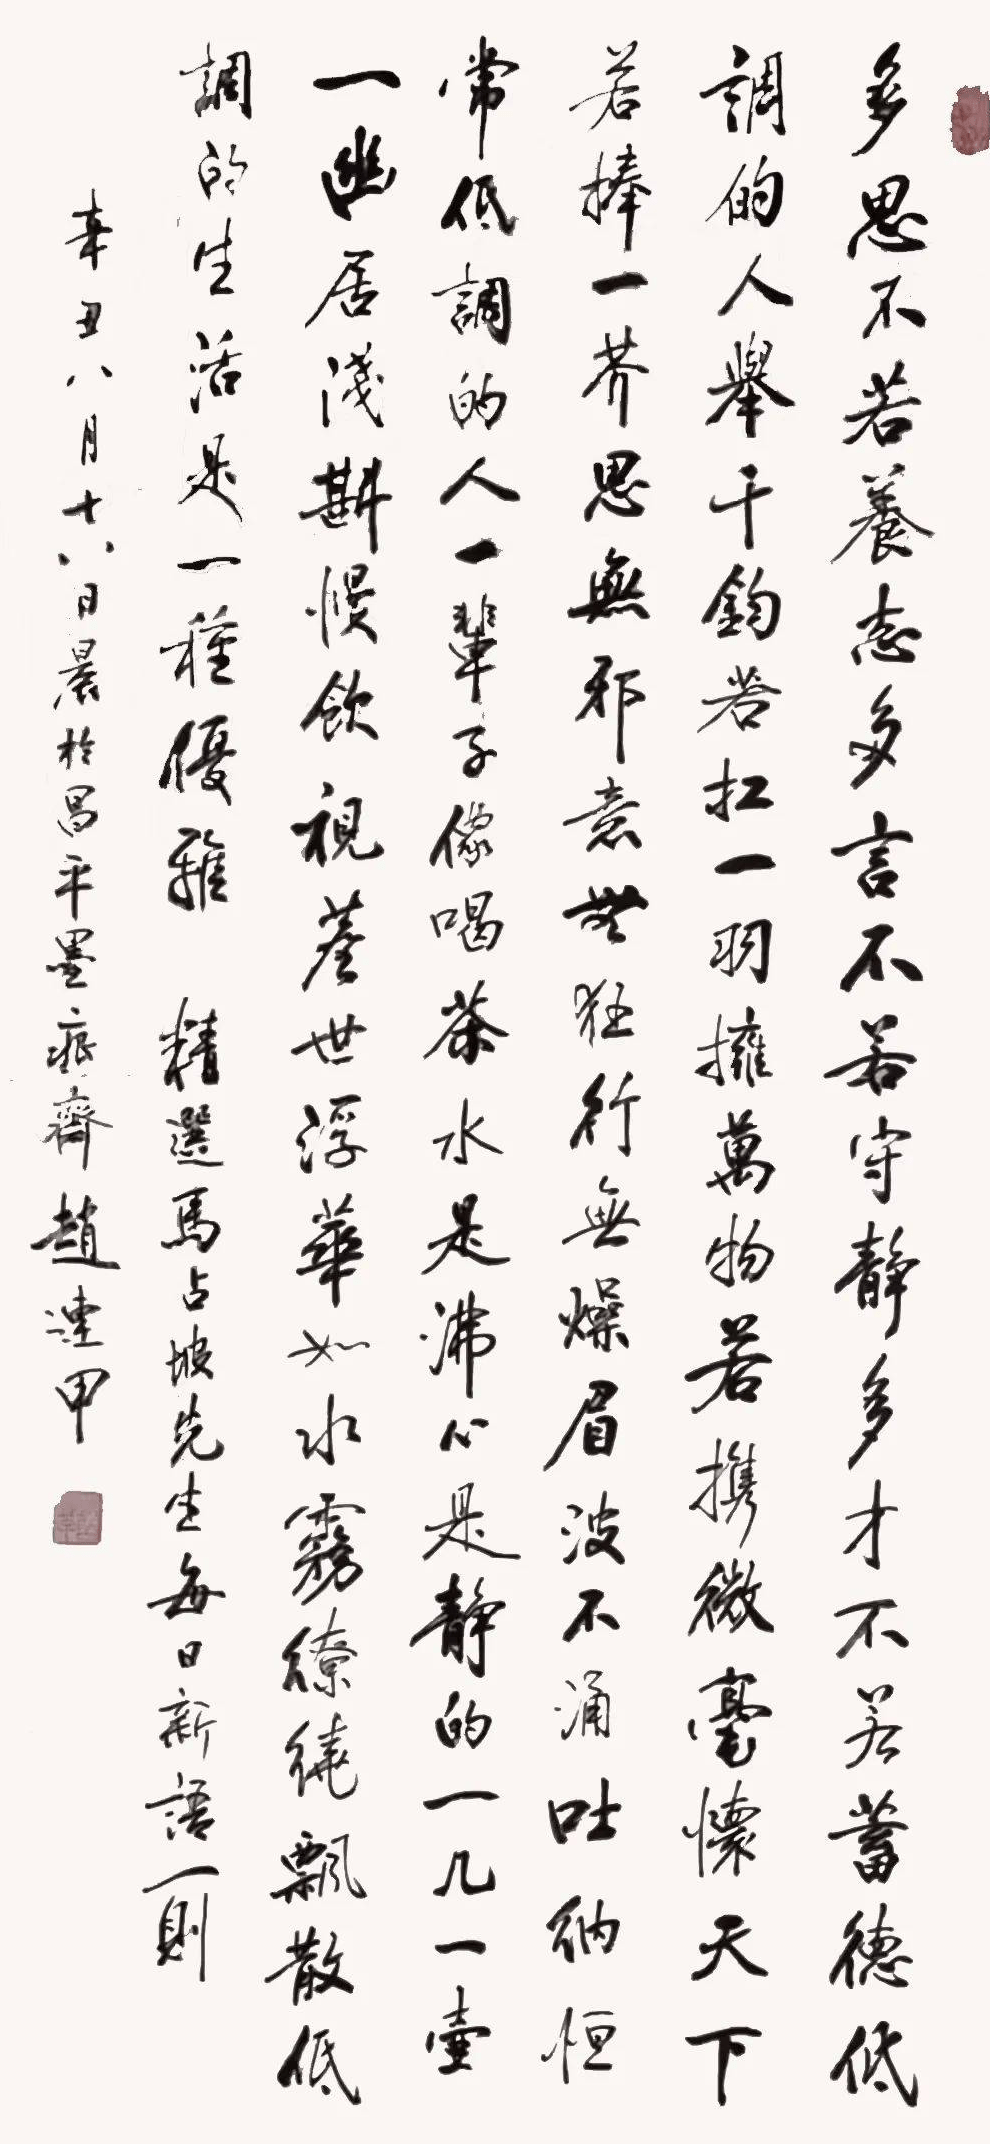 多思不若養志多言不若守靜多才不若蓄德低
調的人舉千鈞若扛一羽擁萬物若攜微毫懷天下
若捧一芥思無邪意無狂行無燥眉波不涌吐納恒
常低調的人一輩子像喝茶水是沸心是靜的一几一壺
一幽居淺斟慢飲視塵世浮華如水霧繚繞飄散低
調的生活是一種優雅 精選馬占坡先生每日新語一則
辛丑八月十八日晨於昌平墨痕齋趙連甲